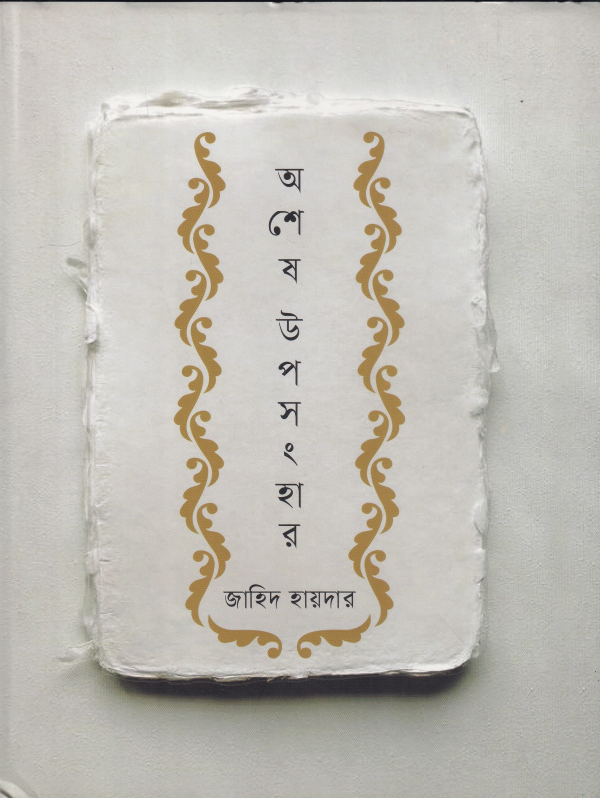 অ
শে
ষ
উ
প
স
ং
হা
র
জাহিদ হায়দার